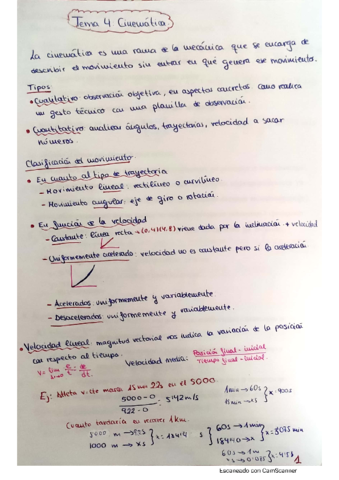 Tema 4 Cinemática
La cinemática es una rama de la mecánica que se encarga de
describir el movimiento sin entrar en qué genera ese movimiento.
Tipos
• Cualitativo observación objetiva, en aspectos concretos como realiza
un gesto técnico con una planilla de observación.
• Cuantitativo analizar ángulos, trayectorias, velocidad a sacar
números.
Clasificación del movimiento
• En cuanto al tipo de trayectoria
- Movimiento lineal: rectilíneo o curvilíneo.
- Movimiento angular: eje de giro o rotación.
• En función de la velocidad
- Constante: línea recta → viene dada por la inclinación → velocidad
- Uniformemente acelerado: velocidad no es constante pero sí la aceleración.
- Acelerados uniformemente y variablemente
- Desacelerados uniformemente y variablemente.
• Velocidad lineal: magnitud vectorial nos indica la variación de la posición
con respecto al tiempo.
Velocidad media: Posición final - inicial
Tiempo final - inicial.
Ej: Atleta 15 min 22s en el 5000
5000 - 0
922 - 0
1 min → 60s
Cuanto tardaría en recorrer 1km.
1000 m → x s
60s → 1 min
1
Escaneado con CamScanner